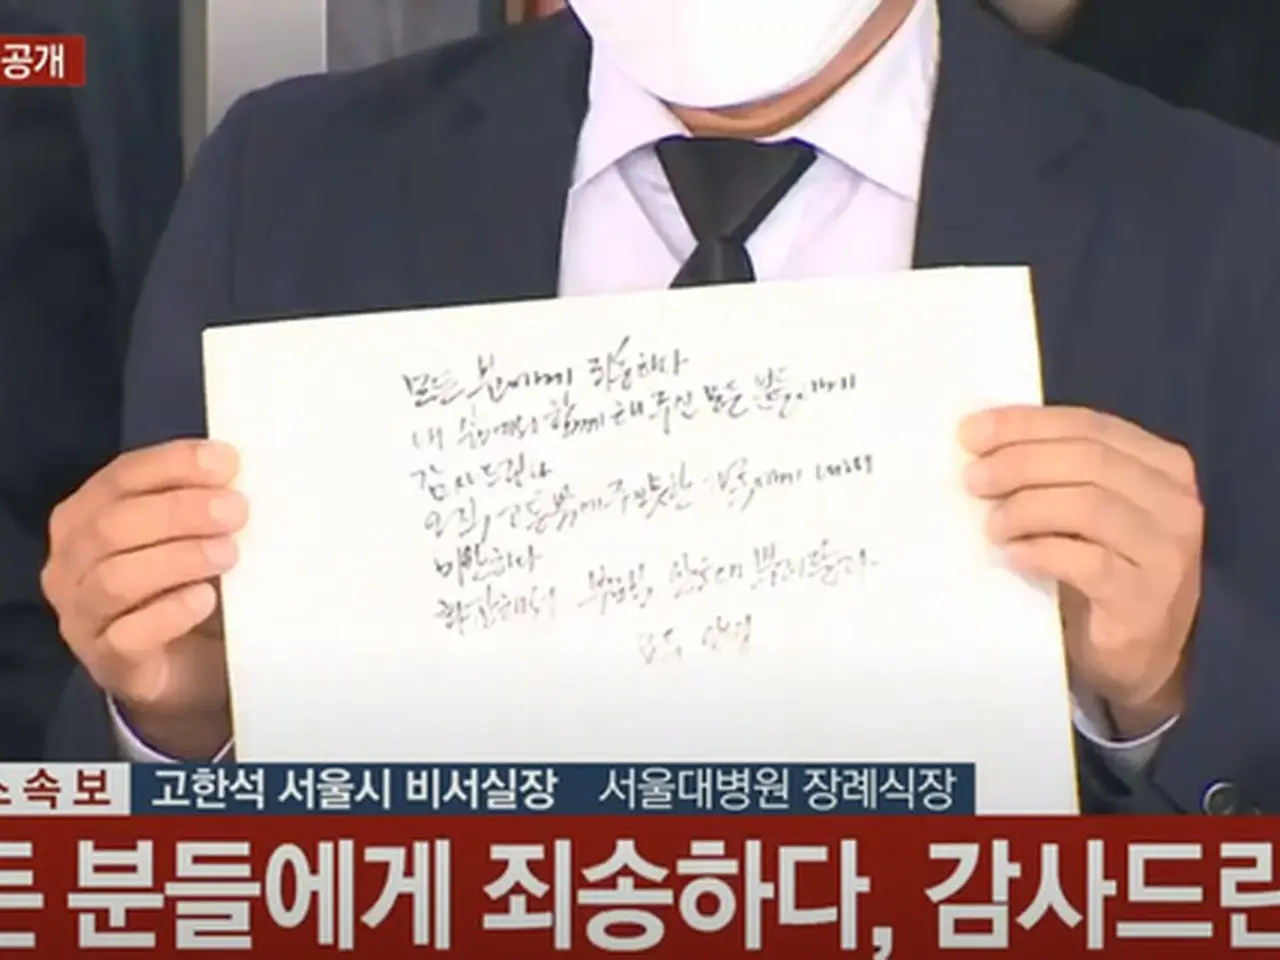 공개
모든 분에게 죄송하다
내 삶에서 함께 해주신 모든 분들에게
감사드린다
오직, 고통밖에 주지 못한 가족에게 내내
미안하다
화장해서 부모님 산소에 뿌려달라.
모두 안녕
속보
고한석 서울시 비서실장 서울대병원 장례식장
든 분들에게 죄송하다, 감사드린